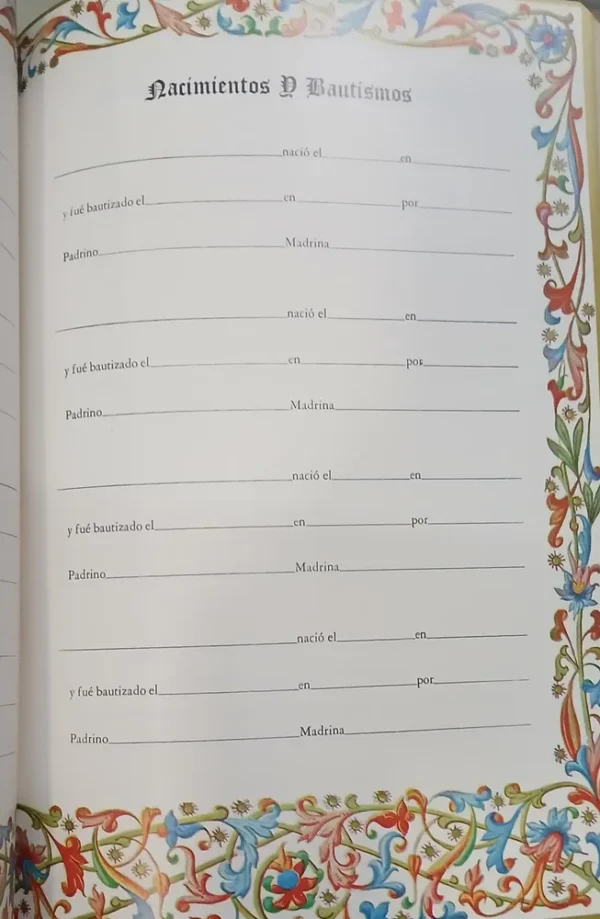 Nacimientos Y Bautismos
nació el en
y fué bautizado el en por
Padrino Madrina
nació el en
y fué bautizado el en por
Padrino Madrina
nació el en
y fué bautizado el en por
Padrino Madrina
nació el en
y fué bautizado el en por
Padrino Madrina